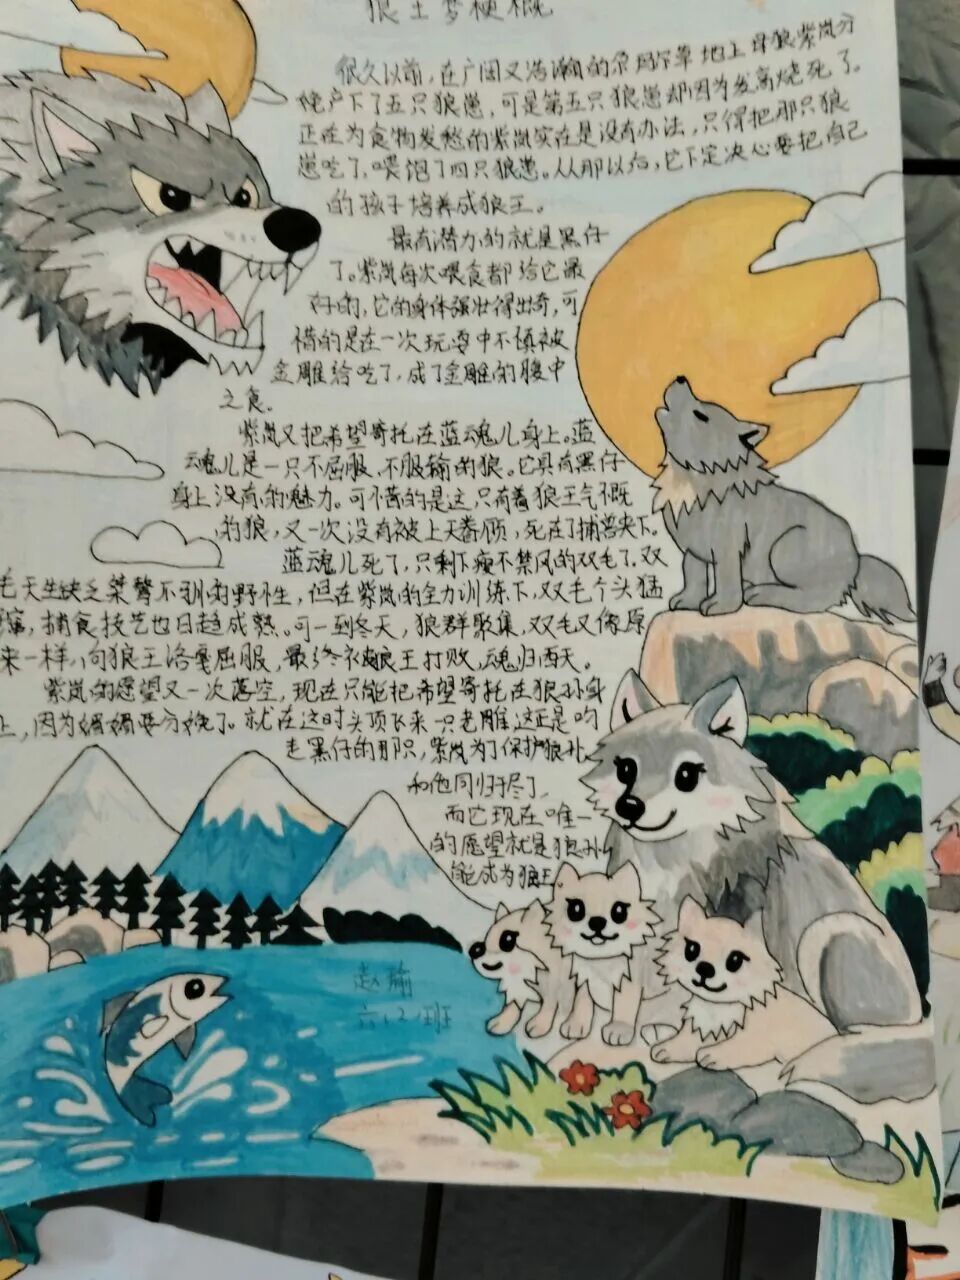 狼王梦梗概
很久以前，在广阔又浩瀚的尕玛尔草地上母狼紫岚分
娩产下了五只狼崽，可是第五只狼崽却因为发高烧死了。
正在为食物发愁的紫岚实在是没有办法，只得把那只狼
崽吃了，喂饱了四只狼崽。从那以后，它下定决心要把自己
的孩子培养成狼王。
最有潜力的就是黑仔
了。紫岚每次喂食都给它最
好的，它的身体强壮得出奇，可
惜的是在一次玩耍中不慎被
金雕给吃了，成了金雕的腹中
之食。
紫岚又把希望寄托在蓝魂儿身上。蓝
魂儿是一只不屈服，不服输的狼。它具有黑仔
身上没有的魅力。可惜的是这只有着狼王气概
的狼，又一次没有被上天眷顾，死在了捕兽夹下。
蓝魂儿死了，只剩下瘦不禁风的双毛了。双
毛天生缺乏桀骜不驯的野性，但在紫岚的全力训练下，双毛个头猛
蹿，捕食技艺也日趋成熟。可一到冬天，狼群聚集，双毛又像原
来一样，向狼王洛戛屈服，最终被狼王打败，魂归西天。
紫岚的愿望又一次落空，现在只能把希望寄托在狼孙身
上，因为媚媚要分娩了。就在这时头顶飞来一只老雕这正是叼
走黑仔的那只，紫岚为了保护狼孙
和他同归于尽了。
而它现在唯一
的愿望就是狼孙
能成为狼王
赵瑜
六（2）班